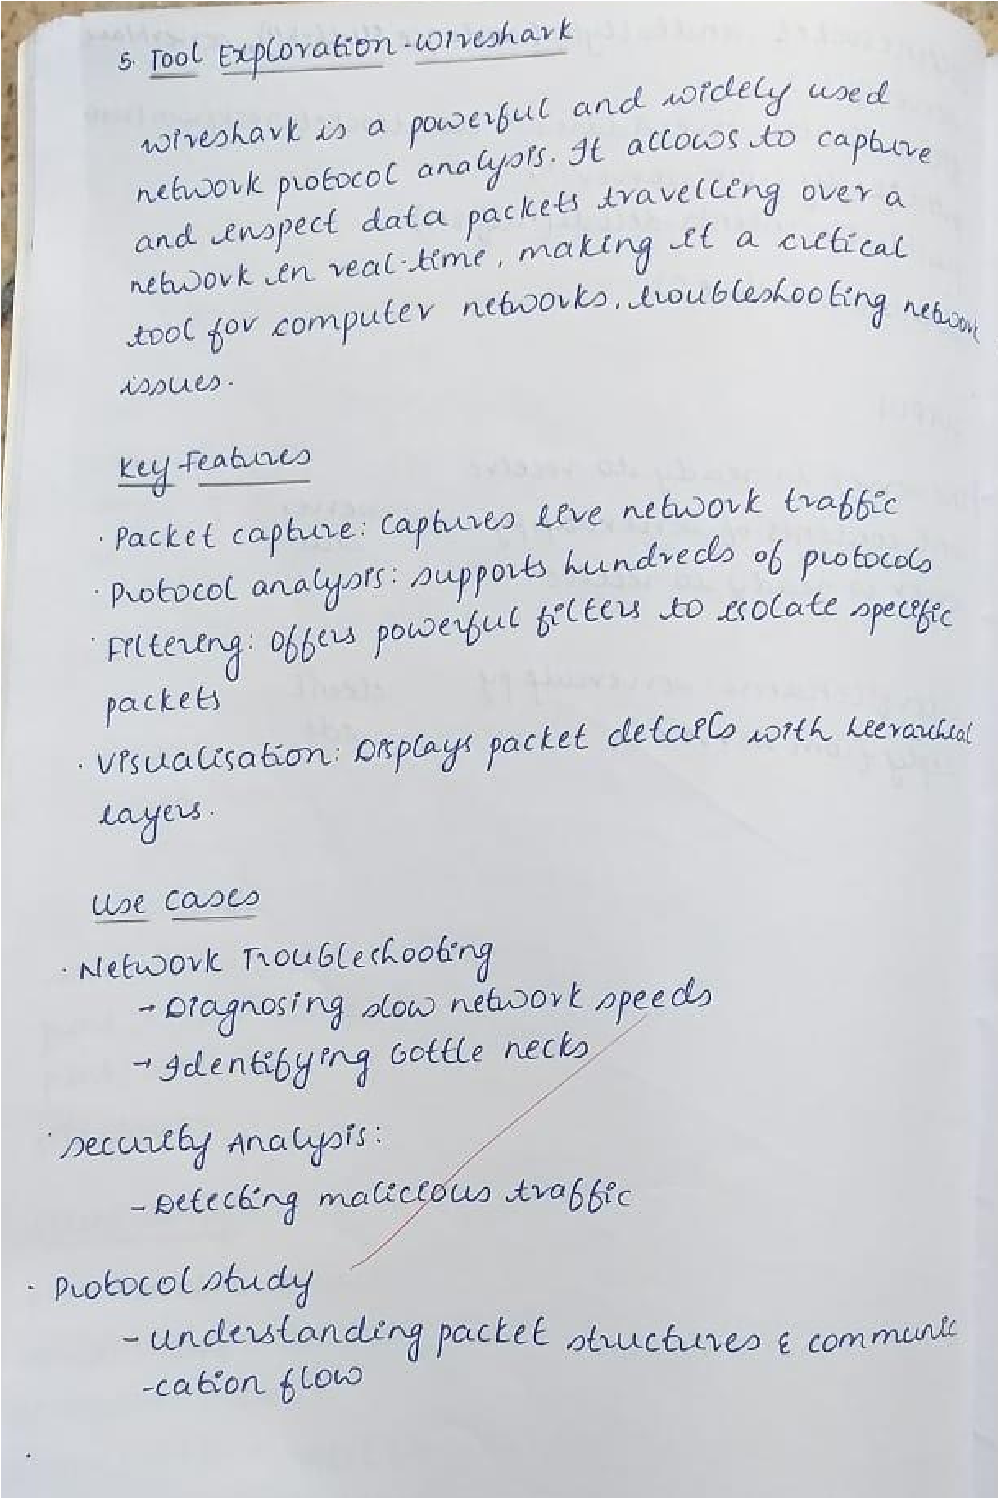 5. Tool Exploration - Wireshark
Wireshark is a powerful and widely used
network protocol analysis. It allows to capture
and inspect data packets travelling over a
network in real-time, making it a critical
tool for computer networks, troubleshooting network
issues.
Key Features
. Packet capture: Captures live network traffic
. Protocol analysis: supports hundreds of protocols
. Filtering: Offers powerful filters to isolate specific
packets
. Visualisation: Displays packet details with hierarchical
layers.
Use Cases
. Network Troubleshooting
→ Diagnosing slow network speeds
→ Identifying bottle necks
. Security Analysis:
- Detecting malicious traffic
. Protocol study
- Understanding packet structures & communic
-cation flow